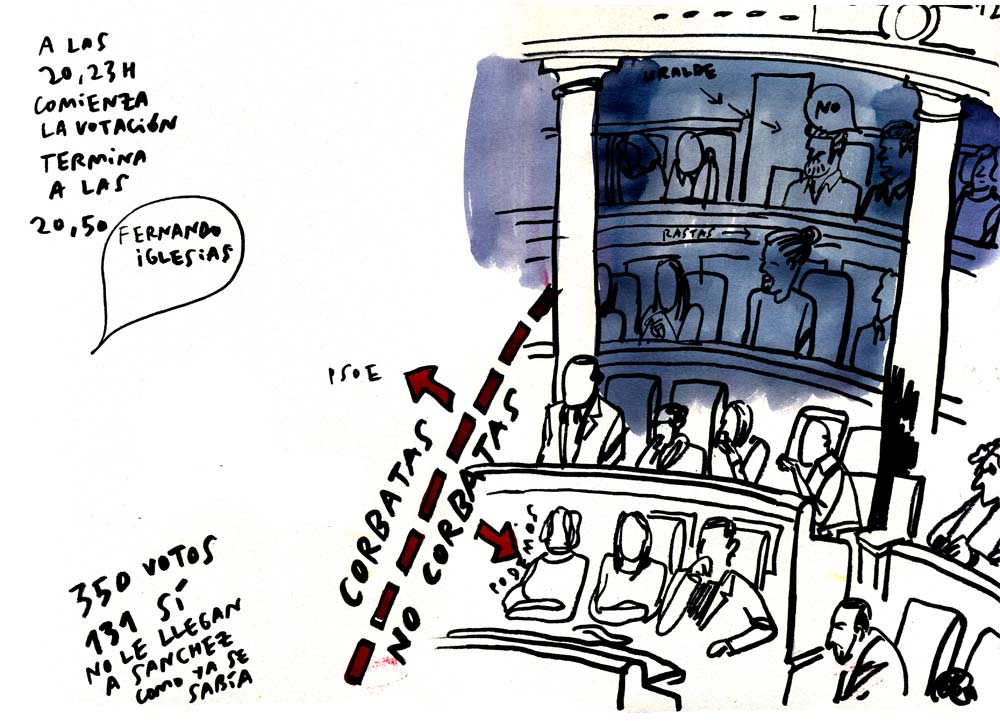 A LAS
20,23H
COMIENZA
LA VOTACIÓN
TERMINA
A LAS
20,50
FERNANDO
IGLESIAS
URALDE
NO
RASTAS
PSOE
CORBATAS
NO CORBATAS
PODEMOS
350 VOTOS
131 SÍ
NO LE LLEGAN
A SANCHEZ
COMO YA SE
SABÍA